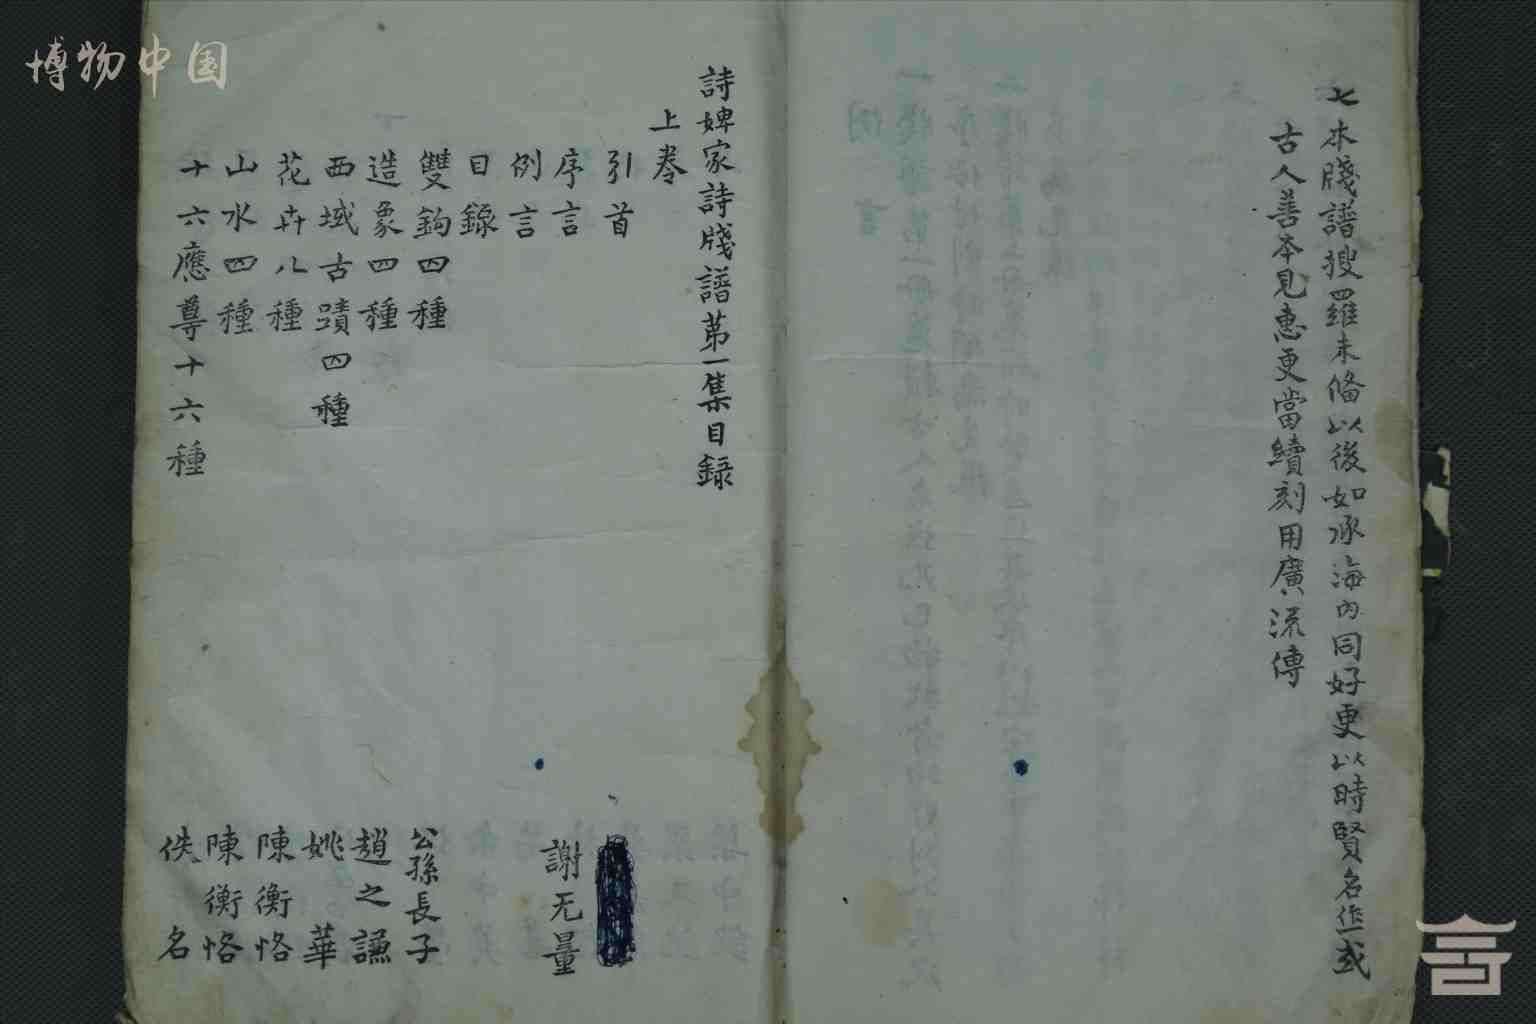 博物中国
七本牋譜搜羅未備以後如承海内同好更以時賢名作或
古人善本見惠更當續刻用廣流傳
詩婢家詩牋譜第一集目録
上卷
引首
序言 謝无量
例言
目録
雙鉤四種 公孫長子
造象四種 趙之謙
西域古蹟四種 姚華
花卉八種 陳衡恪
山水四種 陳衡恪
十六應尊十六種 佚名